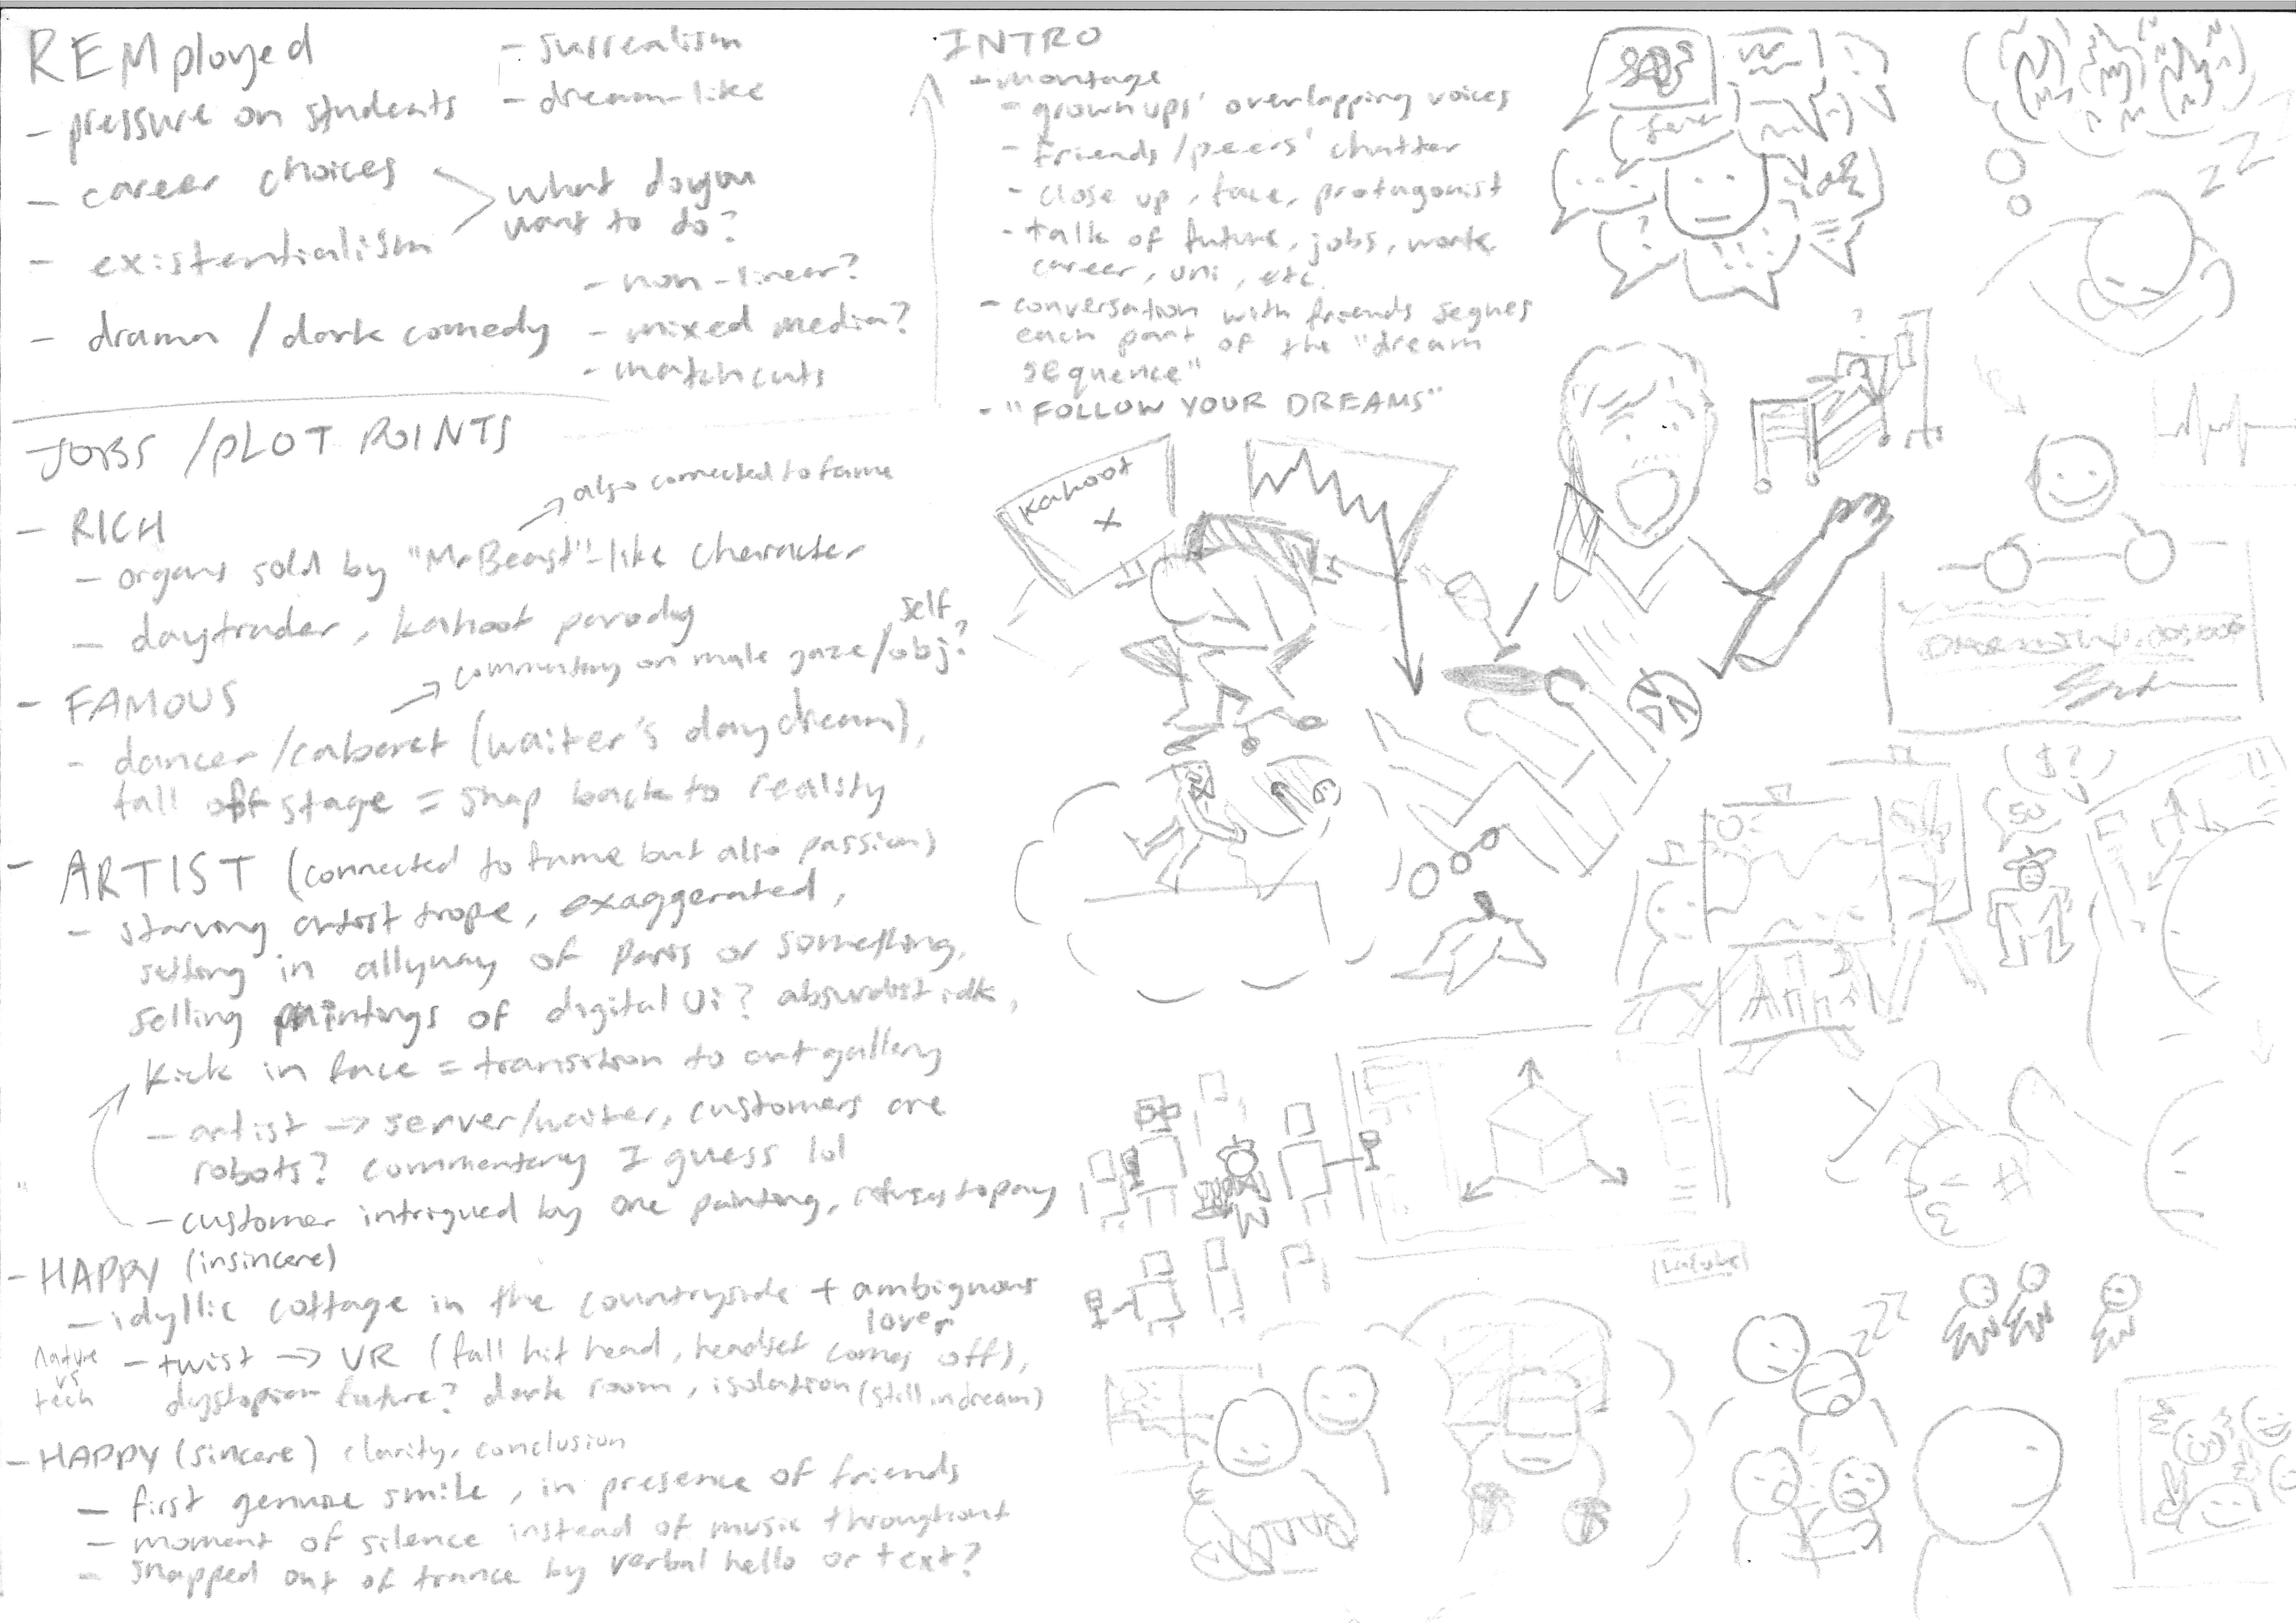 REMployed
- pressure on students
- career choices
- existentialism
what do you
want to do?
- drama / dark comedy
- surrealism
- dream-like
- non-linear?
- mixed media?
- matchcuts
INTRO
- montage
- grownups' overlapping voices
- friends/peers' chatter
- close up, face, protagonist
- talk of future, jobs, work,
career, uni, etc.
- conversation with friends segues
each part of the "dream
sequence"
- "FOLLOW YOUR DREAMS"
JOBS / PLOT POINTS
- RICH
also connected to fame
- organs sold by "MrBeast"-like character
- daytrader, kahoot parody
- FAMOUS
commentary on male gaze/self obj?
- dancer/cabaret (waiter's daydream),
fall off stage = snap back to reality
- ARTIST (connected to fame but also passion)
- starving artist trope, exaggerated,
setting in allyway of paris or something,
selling paintings of digital ui? absurdist idk,
kick in face = transition to art gallery
- artist -> server/waiter, customers are
robots? commentary I guess lol
- customer intrigued by one painting, refuses to pay
- HAPPY (insincere)
- idyllic cottage in the countryside + ambiguous
lover
nature
vs
tech
- twist -> VR (fall hit head, headset comes off),
dystopian future? dark room, isolation (still in dream)
- HAPPY (sincere) clarity, conclusion
- first genuine smile, in presence of friends
- moment of silence instead of music throughout
- snapped out of trance by verbal hello or text?
Kahoot
x
ZZZ
$?
50
ZZZ